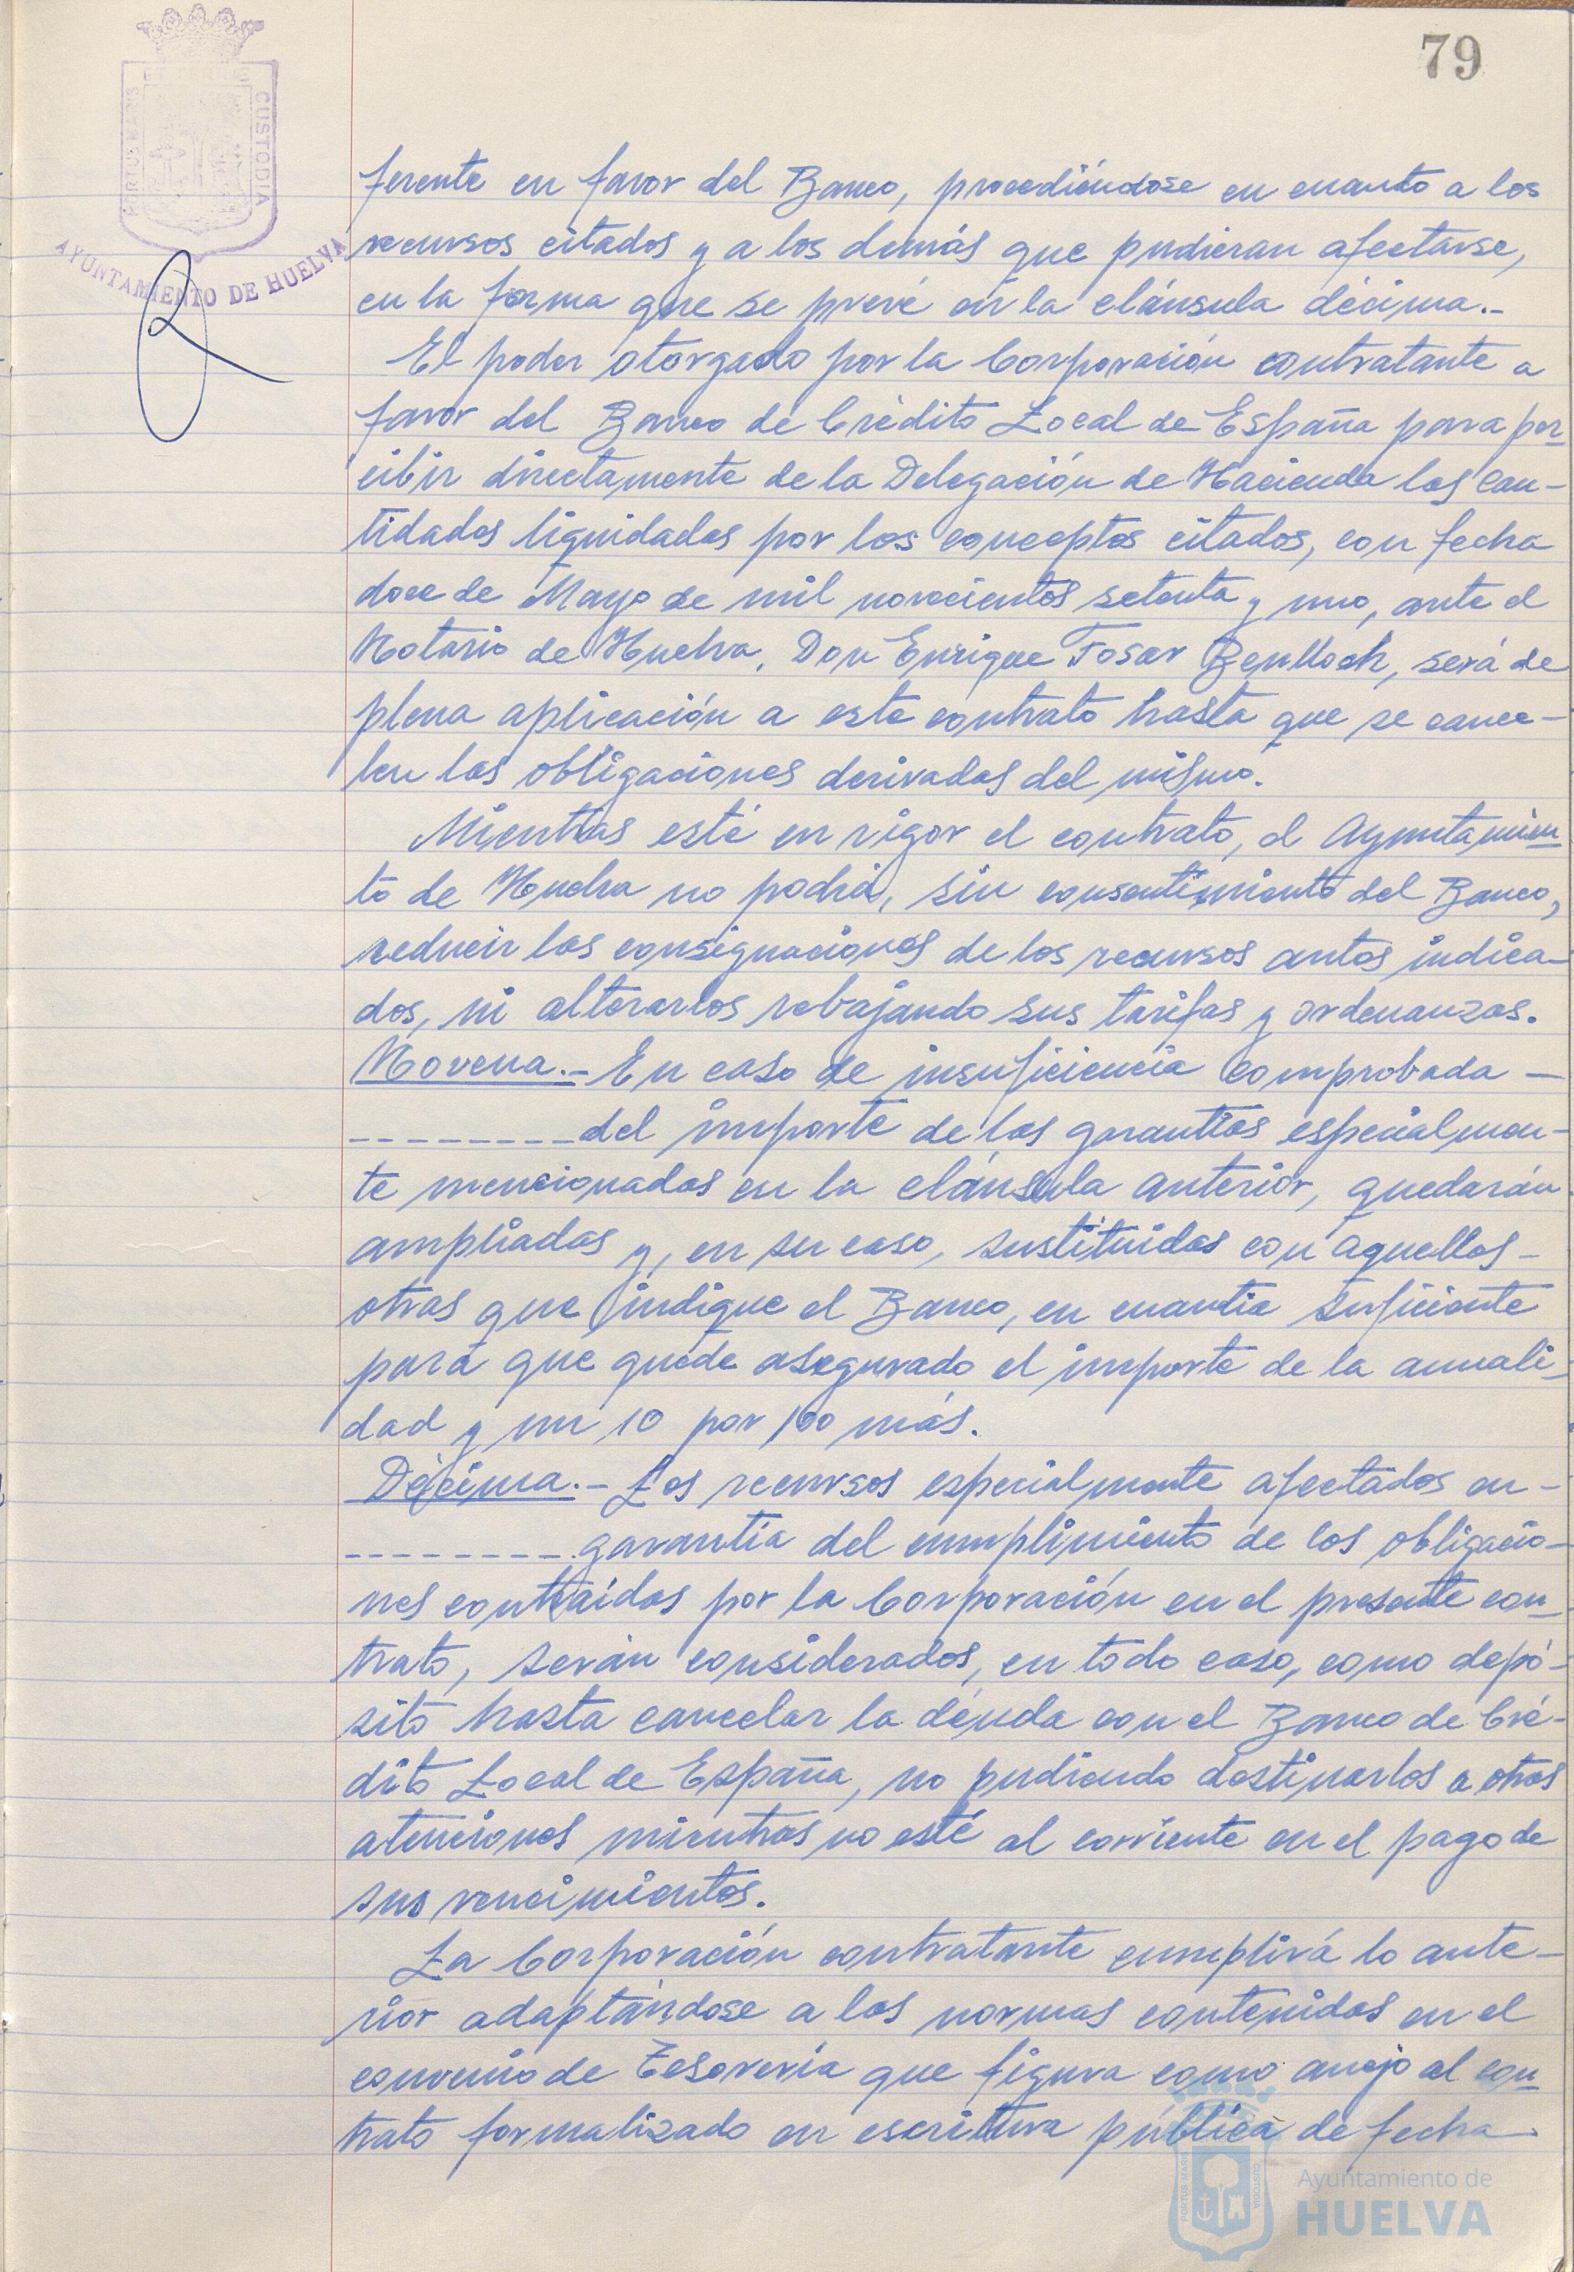 79
PORTUS MARIS
ET TERRAE
CUSTODIA
AYUNTAMIENTO DE HUELVA
ferente en favor del Banco, procediéndose en cuanto a los
recursos citados y a los demás que pudieran afectarse,
en la forma que se prevé en la cláusula décima.-
El poder otorgado por la Corporación contratante a
favor del Banco de Crédito Local de España para per-
cibir directamente de la Delegación de Hacienda las can-
tidades liquidadas por los conceptos citados, con fecha
doce de Mayo de mil novecientos setenta y uno, ante el
Notario de Huelva, Don Enrique Tosar Benlloch, será de
plena aplicación a este contrato hasta que se cance-
len las obligaciones derivadas del mismo.
Mientras esté en vigor el contrato, el Ayuntamien-
to de Huelva no podrá, sin consentimiento del Banco,
reducir las consignaciones de los recursos antes indica-
dos, ni alterarlos rebajando sus tarifas y ordenanzas.
Novena.- En caso de insuficiencia comprobada -
--------del importe de las garantías especialmen-
te mencionadas en la cláusula anterior, quedarán
ampliadas y, en su caso, sustituidas con aquellas-
otras que indique el Banco, en cuantía suficiente
para que quede asegurado el importe de la anuali-
dad y un 10 por 100 más.
Décima.- Los recursos especialmente afectados en-
--------garantía del cumplimiento de las obligacio-
nes contraídas por la Corporación en el presente con-
trato, serán considerados, en todo caso, como depó-
sito hasta cancelar la deuda con el Banco de Cré-
dito Local de España, no pudiendo destinarlos a otras
atenciones mientras no esté al corriente en el pago de
sus vencimientos.
La Corporación contratante cumplirá lo ante-
rior adaptándose a las normas contenidas en el
convenio de Tesorería que figura como anejo al con-
trato formalizado en escritura pública de fecha-
PORTUS MARIS
CUSTODIA
Ayuntamiento de
HUELVA